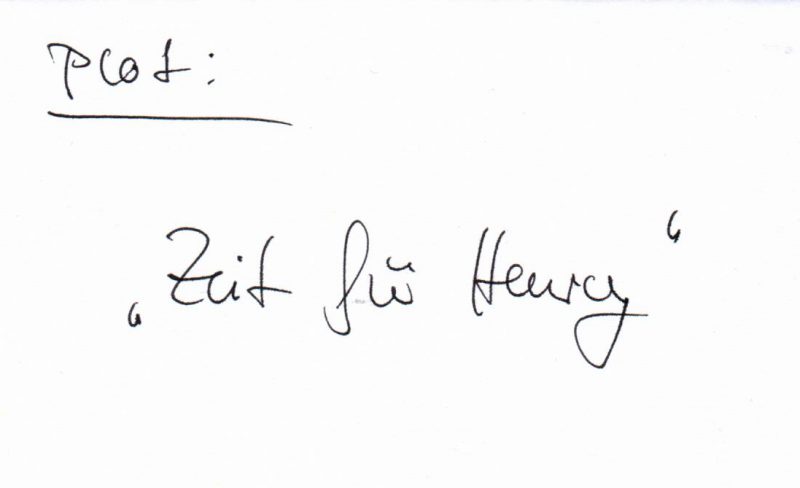 Plot:
„Zeit für Henry“